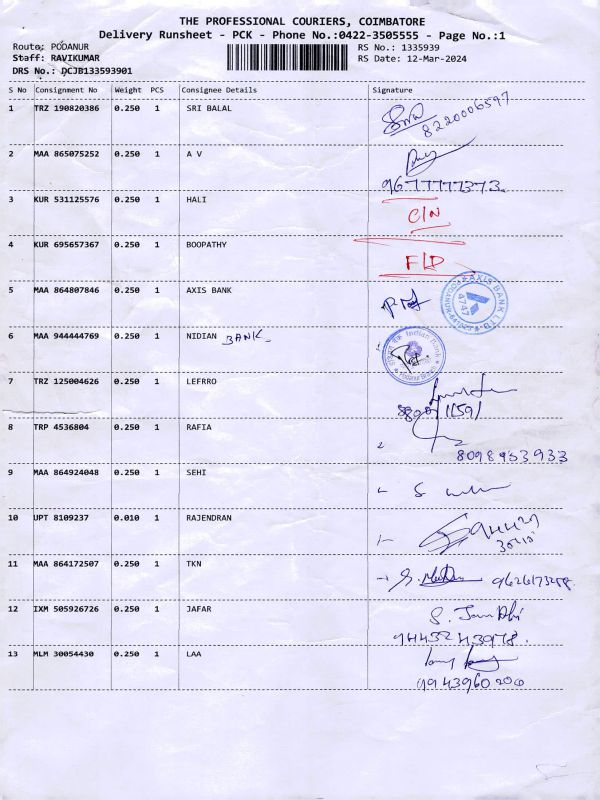 THE PROFESSIONAL COURIERS, COIMBATORE
Delivery Runsheet - PCK - Phone No.:0422-3505555 - Page No.:1
Route: PODANUR RS No.: 1335939
Staff: RAVIKUMAR RS Date: 12-Mar-2024
DRS No.: DCJB133593901
S No Consignment No Weight PCS Consignee Details Signature
1 TRZ 190820386 0.250 1 SRI BALAL
8220006597
2 MAA 865075252 0.250 1 A V
9677777373
3 KUR 531125576 0.250 1 HALI
C/N
4 KUR 695657367 0.250 1 BOOPATHY
F/D
5 MAA 864807846 0.250 1 AXIS BANK
AXIS BANK LTD.
4747
6 MAA 944444769 0.250 1 NIDIAN BANK
Indian Bank
7 TRZ 125004626 0.250 1 LEFRRO
8 TRP 4536804 0.250 1 RAFIA
8098953933
9 MAA 864924048 0.250 1 SEHI
10 UPT 8109237 0.010 1 RAJENDRAN
11 MAA 864172507 0.250 1 TKN
12 IXM 505926726 0.250 1 JAFAR
9443243978.
13 MLM 30054430 0.250 1 LAA
9943960200